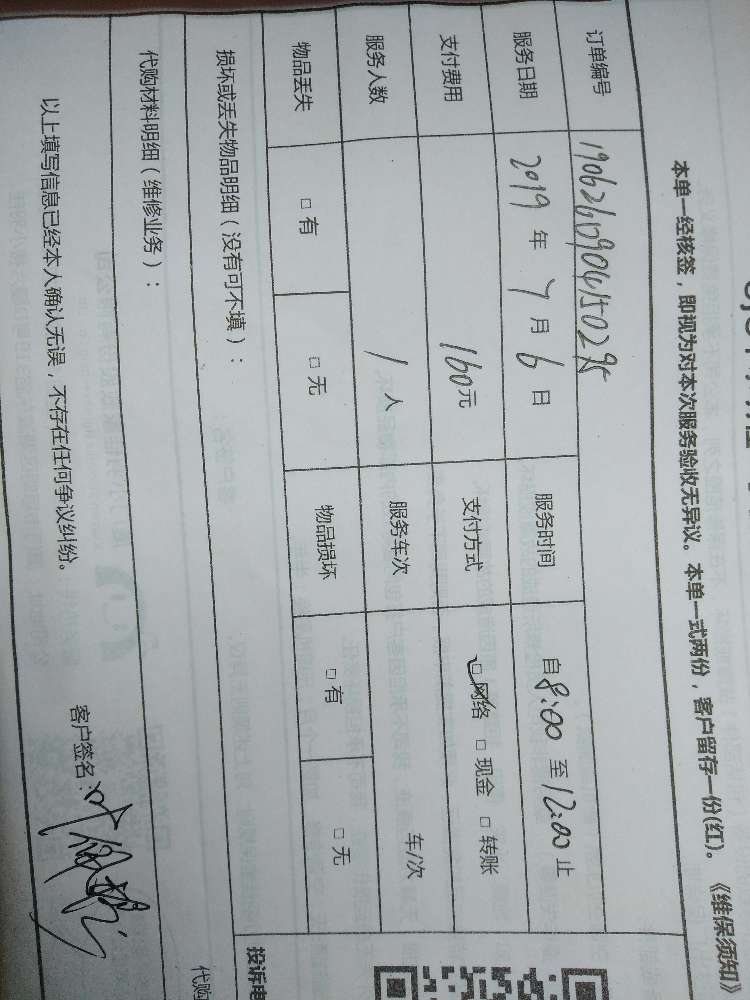 本单一经核签，即视为对本次服务验收无异议。本单一式两份，客户留存一份(红)。《维保须知》
订单编号
服务日期 2019 年 7 月 6 日 服务时间 自 8:00 至 12:00 止
支付费用 160 元 支付方式 □网络 □现金 □转账
服务人数 1 人 服务车次 车/次
物品丢失 □有 □无 物品损坏 □有 □无
损坏或丢失物品明细（没有可不填）：
投诉电
代购材料明细（维修业务）：
代购
以上填写信息已经本人确认无误，不存在任何争议纠纷。
客户签名：